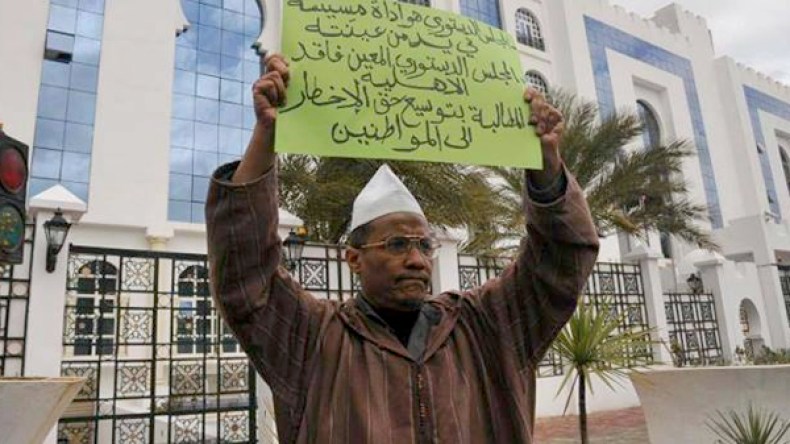 المجلس الدستوري هو أداة مسيسة
في يد من عينته
المجلس الدستوري المعين فاقد
الاهلية
المطالبة بتوسيع حق الإخطار
الى المواطنين